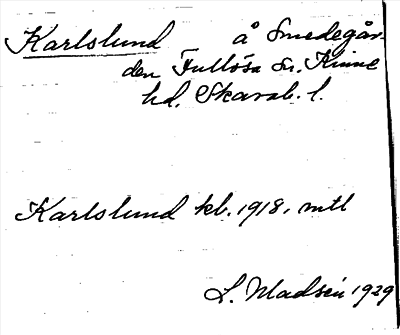 Karlslund å Smedegår-
den Fullösa sn. Kinne
hd. Skarab. l.
Karlslund kb. 1918, mtl
L. Madsén 1929